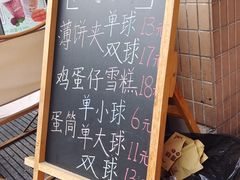 薄饼夹单球 13元
双球 17元
鸡蛋仔雪糕 18元
单小球 6元
蛋筒单大球 11元
双球 13